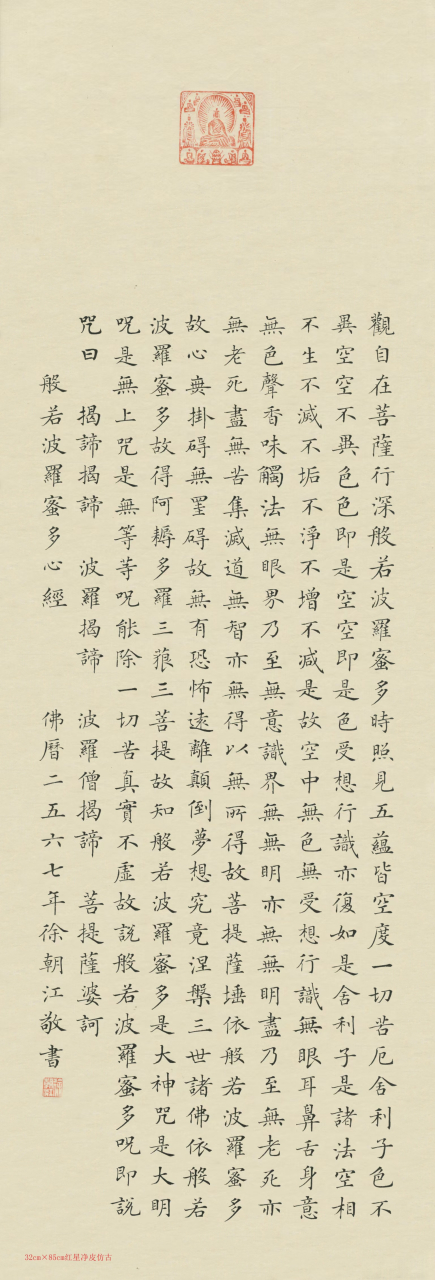 觀自在菩薩行深般若波羅蜜多時照見五蘊皆空度一切苦厄舍利子色不
異空空不異色色即是空空即是色受想行識亦復如是舍利子是諸法空相
不生不滅不垢不淨不增不減是故空中無色無受想行識無眼耳鼻舌身意
無色聲香味觸法無眼界乃至無意識界無無明亦無無明盡乃至無老死亦
無老死盡無苦集滅道無智亦無得以無所得故菩提薩埵依般若波羅蜜多
故心無掛碍無罣碍故無有恐怖遠離顛倒夢想究竟涅槃三世諸佛依般若
波羅蜜多故得阿耨多羅三藐三菩提故知般若波羅蜜多是大神咒是大明
呪是無上咒是無等等呪能除一切苦真實不虛故説般若波羅蜜多呪即説
咒曰 揭諦揭諦 波羅揭諦 波羅僧揭諦 菩提薩婆訶
般若波羅蜜多心經 佛曆二五六七年徐朝江敬書
32cm×85cm红星净皮仿古